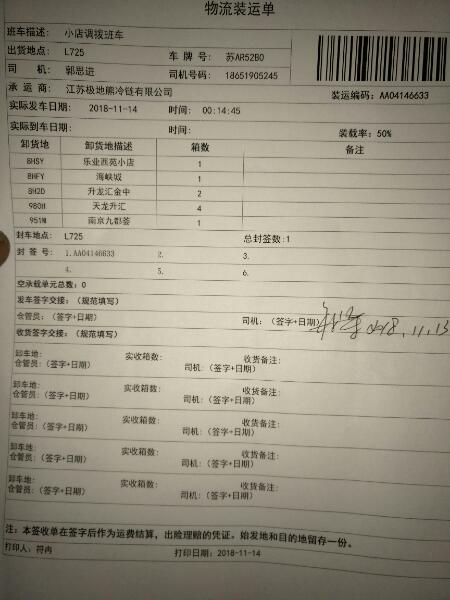 物流装运单
班车描述: 小店调拨班车
出货地点: L725 车牌号: 苏AR52B0
司 机: 郭思进 司机号码: 18651905245
承运商: 江苏极地熊冷链有限公司 装运编码: AA04146633
实际发车日期: 2018-11-14 时间: 00:14:45
实际到车日期: 时间: 装载率: 50%
卸货地 卸货地描述 箱数 备注
8HSY 乐业西苑小店 1
8HFY 海峡城 1
8H2D 升龙汇金中 2
980H 天龙升汇 4
951M 南京九都荟 1
封车地点: L725 总封签数:1
封签号: 1.AA04146633 2. 3.
4. 5. 6.
空承载单元总数: 0
发车签字交接: (规范填写)
仓管员: (签字+日期) 司机: (签字+日期) 2018.11.13
收货签字交接: (规范填写)
卸车地: 实收箱数: 收货备注:
仓管员: (签字+日期) 司机: (签字+日期)
卸车地: 实收箱数: 收货备注:
仓管员: (签字+日期) 司机: (签字+日期)
卸车地: 实收箱数: 收货备注:
仓管员: (签字+日期) 司机: (签字+日期)
卸车地: 实收箱数: 收货备注:
仓管员: (签字+日期) 司机: (签字+日期)
卸车地: 实收箱数: 收货备注:
仓管员: (签字+日期) 司机: (签字+日期)
注: 本签收单在签字后作为运费结算, 出险理赔的凭证。始发地和目的地留存一份。
打印人: 符冉 打印日期: 2018-11-14